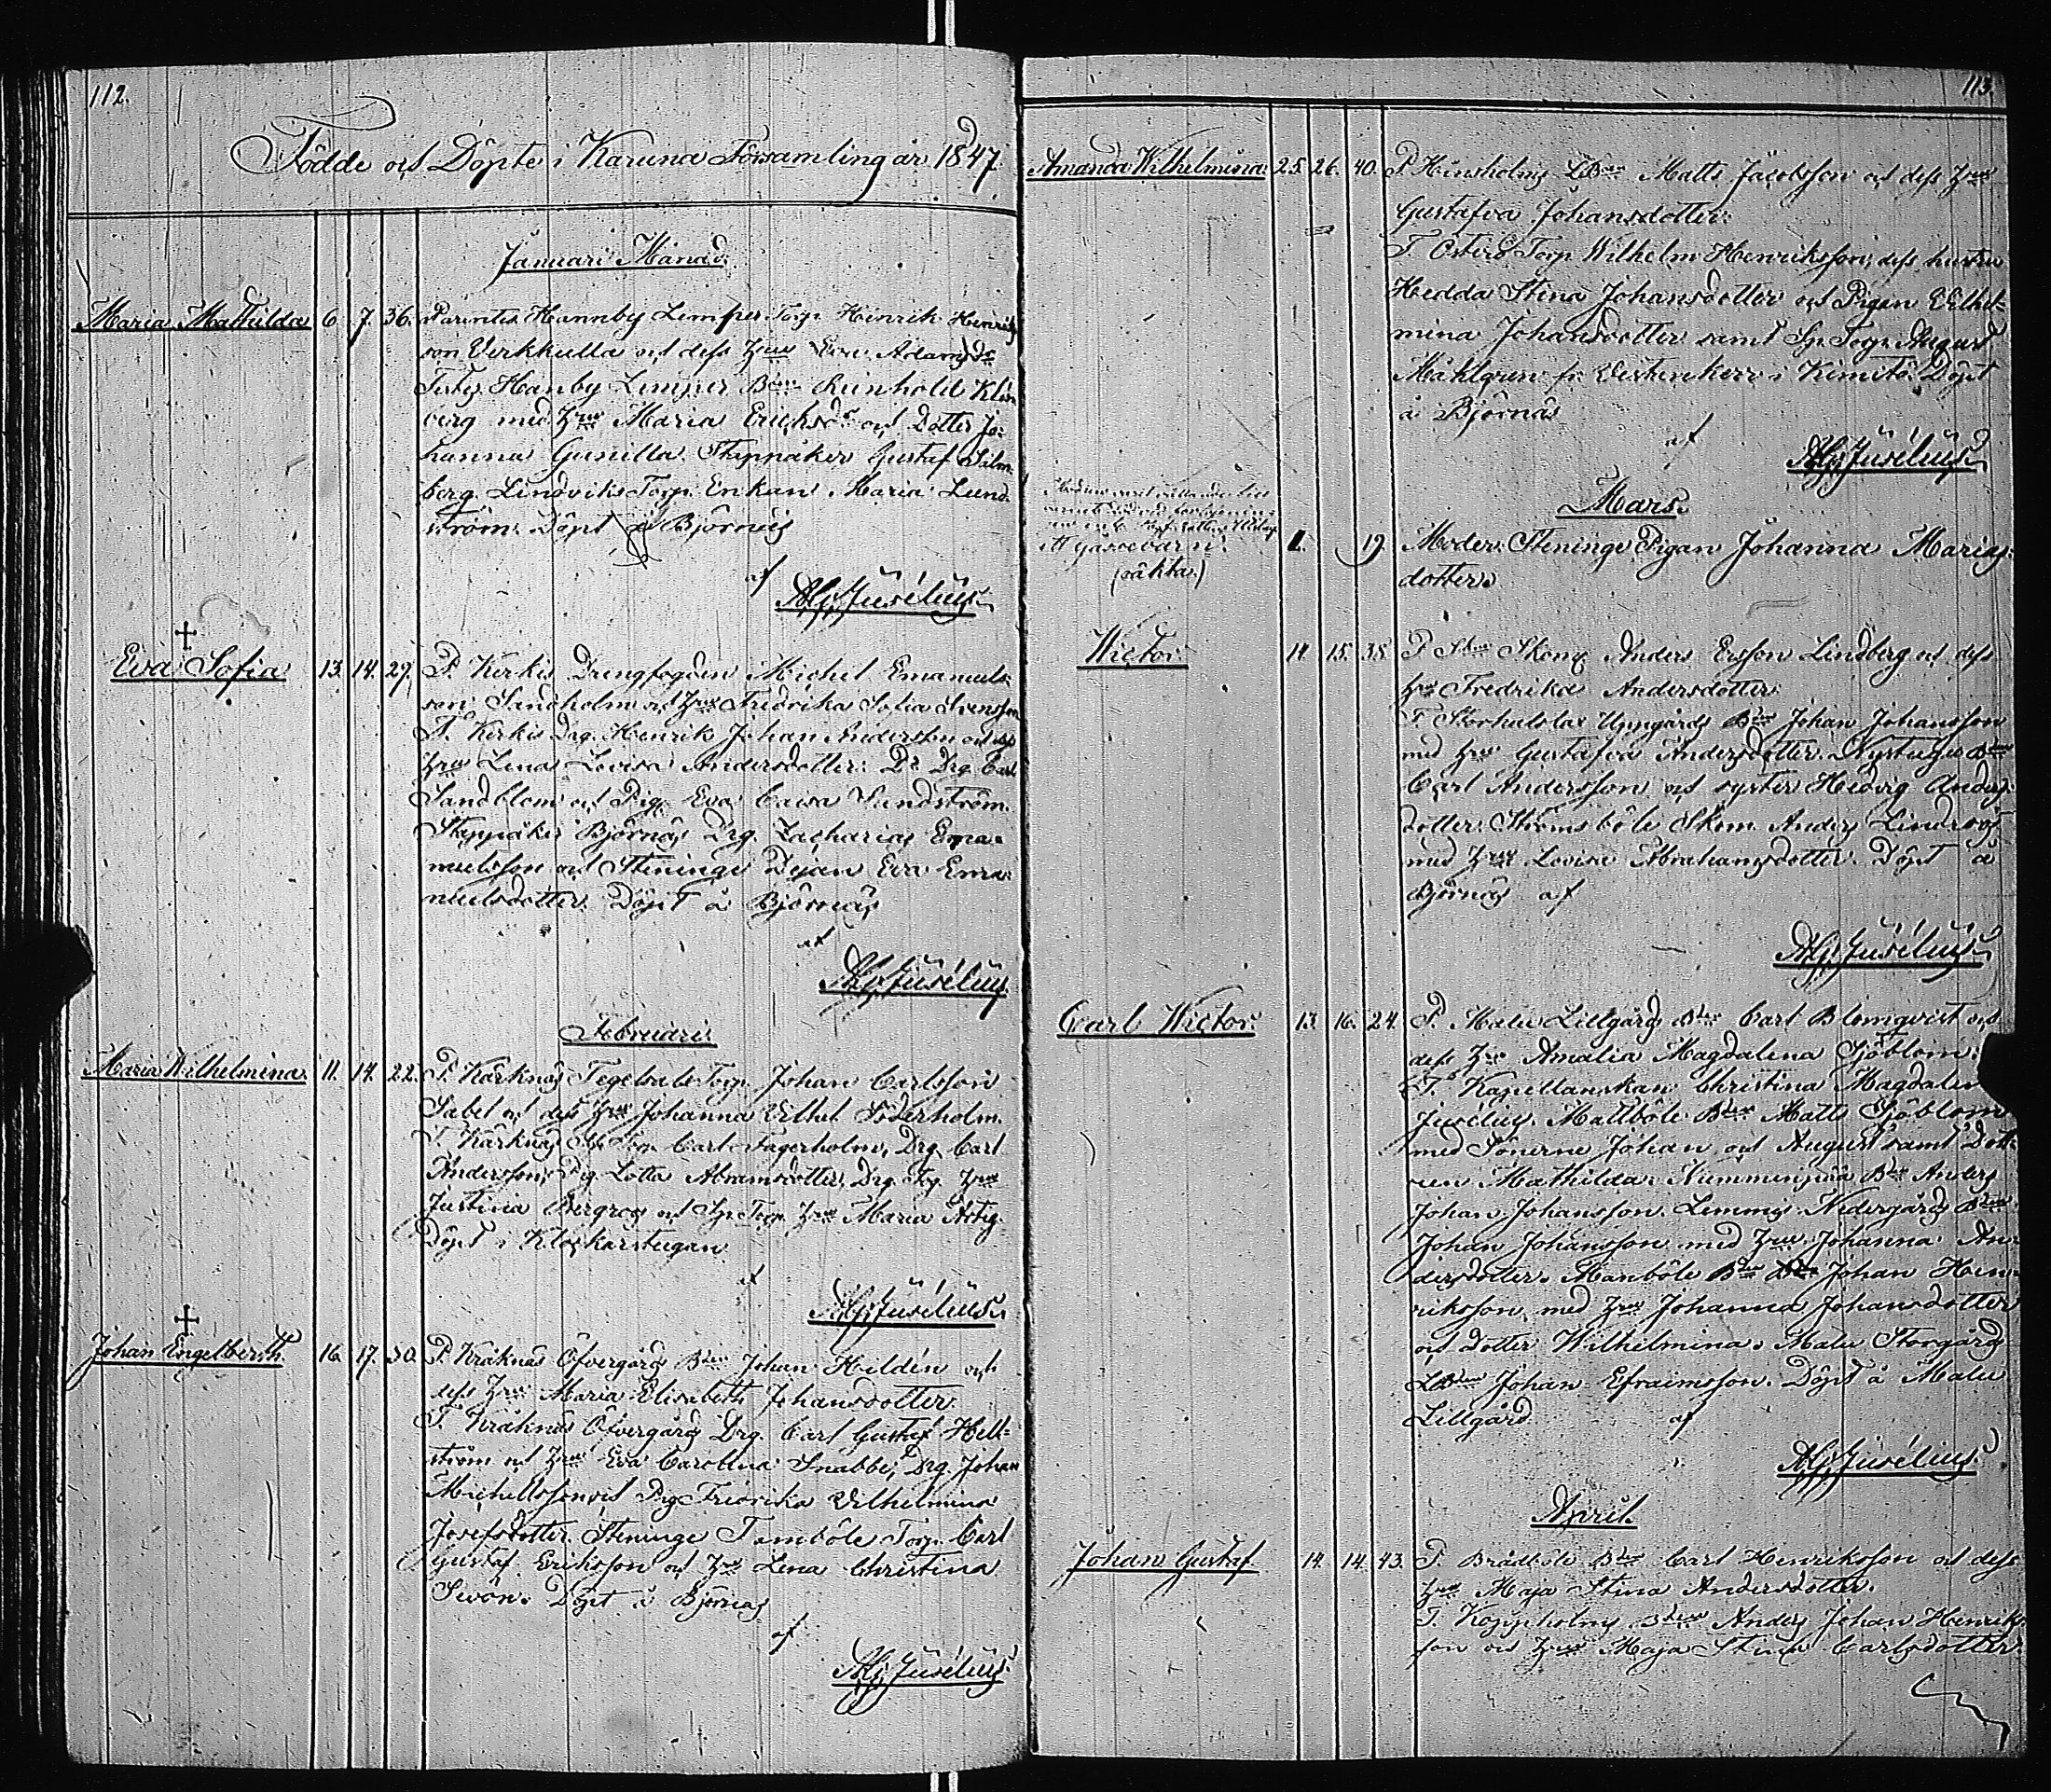 112.
Födde och Döpte i Karuna Församling år 1847
Januari Månad.
Maria Mathilda 6. 7. 36. Parentes Hannby Lemper Torp. Henrik Henriks
son Verkkulla och dess Hru Eva Adamsdr
Testes Hanby Lemper Bdn Reinhold Klin
berg med Hru Maria Ericksdr och Dotter Jo-
hanna Gunilla. Skeppaker Gustaf
berg. Lindviks Torp. Enkan Maria Lund-
ström. Döpt å Björnäs
af
Alg. Jusélius.
Eva Sofia 13. 14. 29. P. Kirkis Drengfogden Michel Emanuels-
son Sandholm och Hru Fredrika Sofia Svensson
T. Kirkis Drg. Henrik Johan Andersson och dess
Hru Lena Lovisa Andersdotter. Do Drg. Carl
Sandblom och Pig. Eva Caisa Sundström.
Björnäs Drg. Zacharias Ema-
nuelsson och Steninge Dejan Eva Ema-
nuelsdotter. Döpt å Björnäs
af
Alg. Jusélius.
Februari.
Maria Wilhelmina. 11. 14. 22. P. Kärknäs Torp. Johan Carlsson
Sabel och dess Hru Johanna Vilhel. Söderholm.
T. Kärknäs Torp. Carl Fagerholm, Drg. Carl
Andersson, Pig. Lotta Abramsdotter, Drg. Hru
Justina Bergroos och Torp. Hru Maria
Döpt i Klockarstugan
af
Alg. Jusélius.
Johan Engelberth. 16. 17. 30. P. Kräknäs Öfvergårds Bdn Johan Heldén och
dess Hru Maria Elisabeth Johansdotter.
T. Kräknäs Öfvergårds Drg. Carl Gustaf Hell-
ström och Hru Eva Carolina Snabbe, Drg. Johan
Michelsson och Pig. Fredrika Vilhelmina
Josefsdotter. Steninge Tamböle Torp. Carl
Gustaf Eriksson och Hru Lena Christina
Sevón. Döpt å Björnäs
af
Alg. Jusélius.
113.
Amanda Wilhelmina. 25. 26. 40. P. Hinsholms LBdn Matts Jacobsson och dess Hru
Gustafva Johansdotter.
T. Österö Torp. Wilhelm Henriksson, dess hustru
Hedda Stina Johansdotter och Pigan Vilhel-
mina Johansdotter samt Sp. Torp. August
Mählgren fr. i Kimito. Döpt
å Björnäs
af
Alg. Jusélius.
Mars.
ett gossebarn. 1. 19. Moder: Steninge Pigan Johanna Marias-
(oäkta.) dotter.
Victor. 14. 15. 35. P. Skom. Anders Ersson Lindberg och dess
Hru Fredrika Andersdotter.
T. Storhulsta Uppgårds Bdn Johan Johansson
med Hru Gustafva Andersdotter. Bdn
Carl Andersson och syster Hedvig Anders-
dotter. Strömsböle Skom. Anders Lindroos
med Hru Lovisa Abrahamsdotter. Döpt å
Björnäs af
Alg. Jusélius.
Carl Victor. 13. 16. 24. P. Malu Lillgårds Bdn Carl Blomqvist och
dess Hru Amalia Magdalena Sjöblom.
T. Kapellanskan Christina Magdalen
Jusélius. Mattböle Bdn Matts Sjöblom
med Sönerne Johan och August samt Dott-
ren Mathilda. Nummenpää Bdn Anders
Johan Johansson. Lemmes Nedergårds Bdn
Johan Johansson med Hru Johanna An-
dersdotter. Manböle Bdn Johan Hen-
riksson med Hru Johanna Johansdotter
och dotter Wilhelmina. Malu Storgårds
LBdn Johan Efraimsson. Döpt å Malu
Lillgård af
Alg. Jusélius.
April.
Johan Gustaf. 14. 14. 43. P. Brådböle Bdn Carl Henriksson och dess
Hru Maja Stina Andersdotter.
T. Koppholms Bdn Anders Johan Henriks-
son och Hru Maja Stina Carlsdotter.